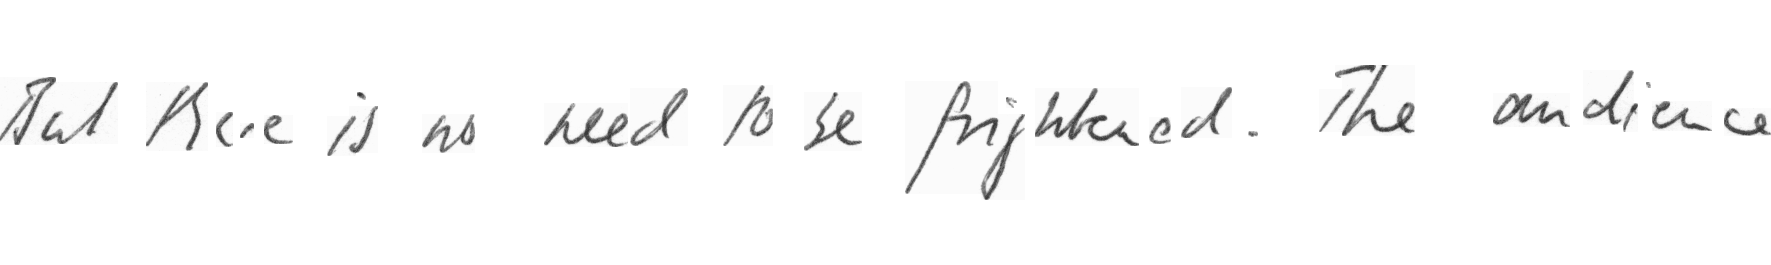 But there is no need to be frightened. The audience